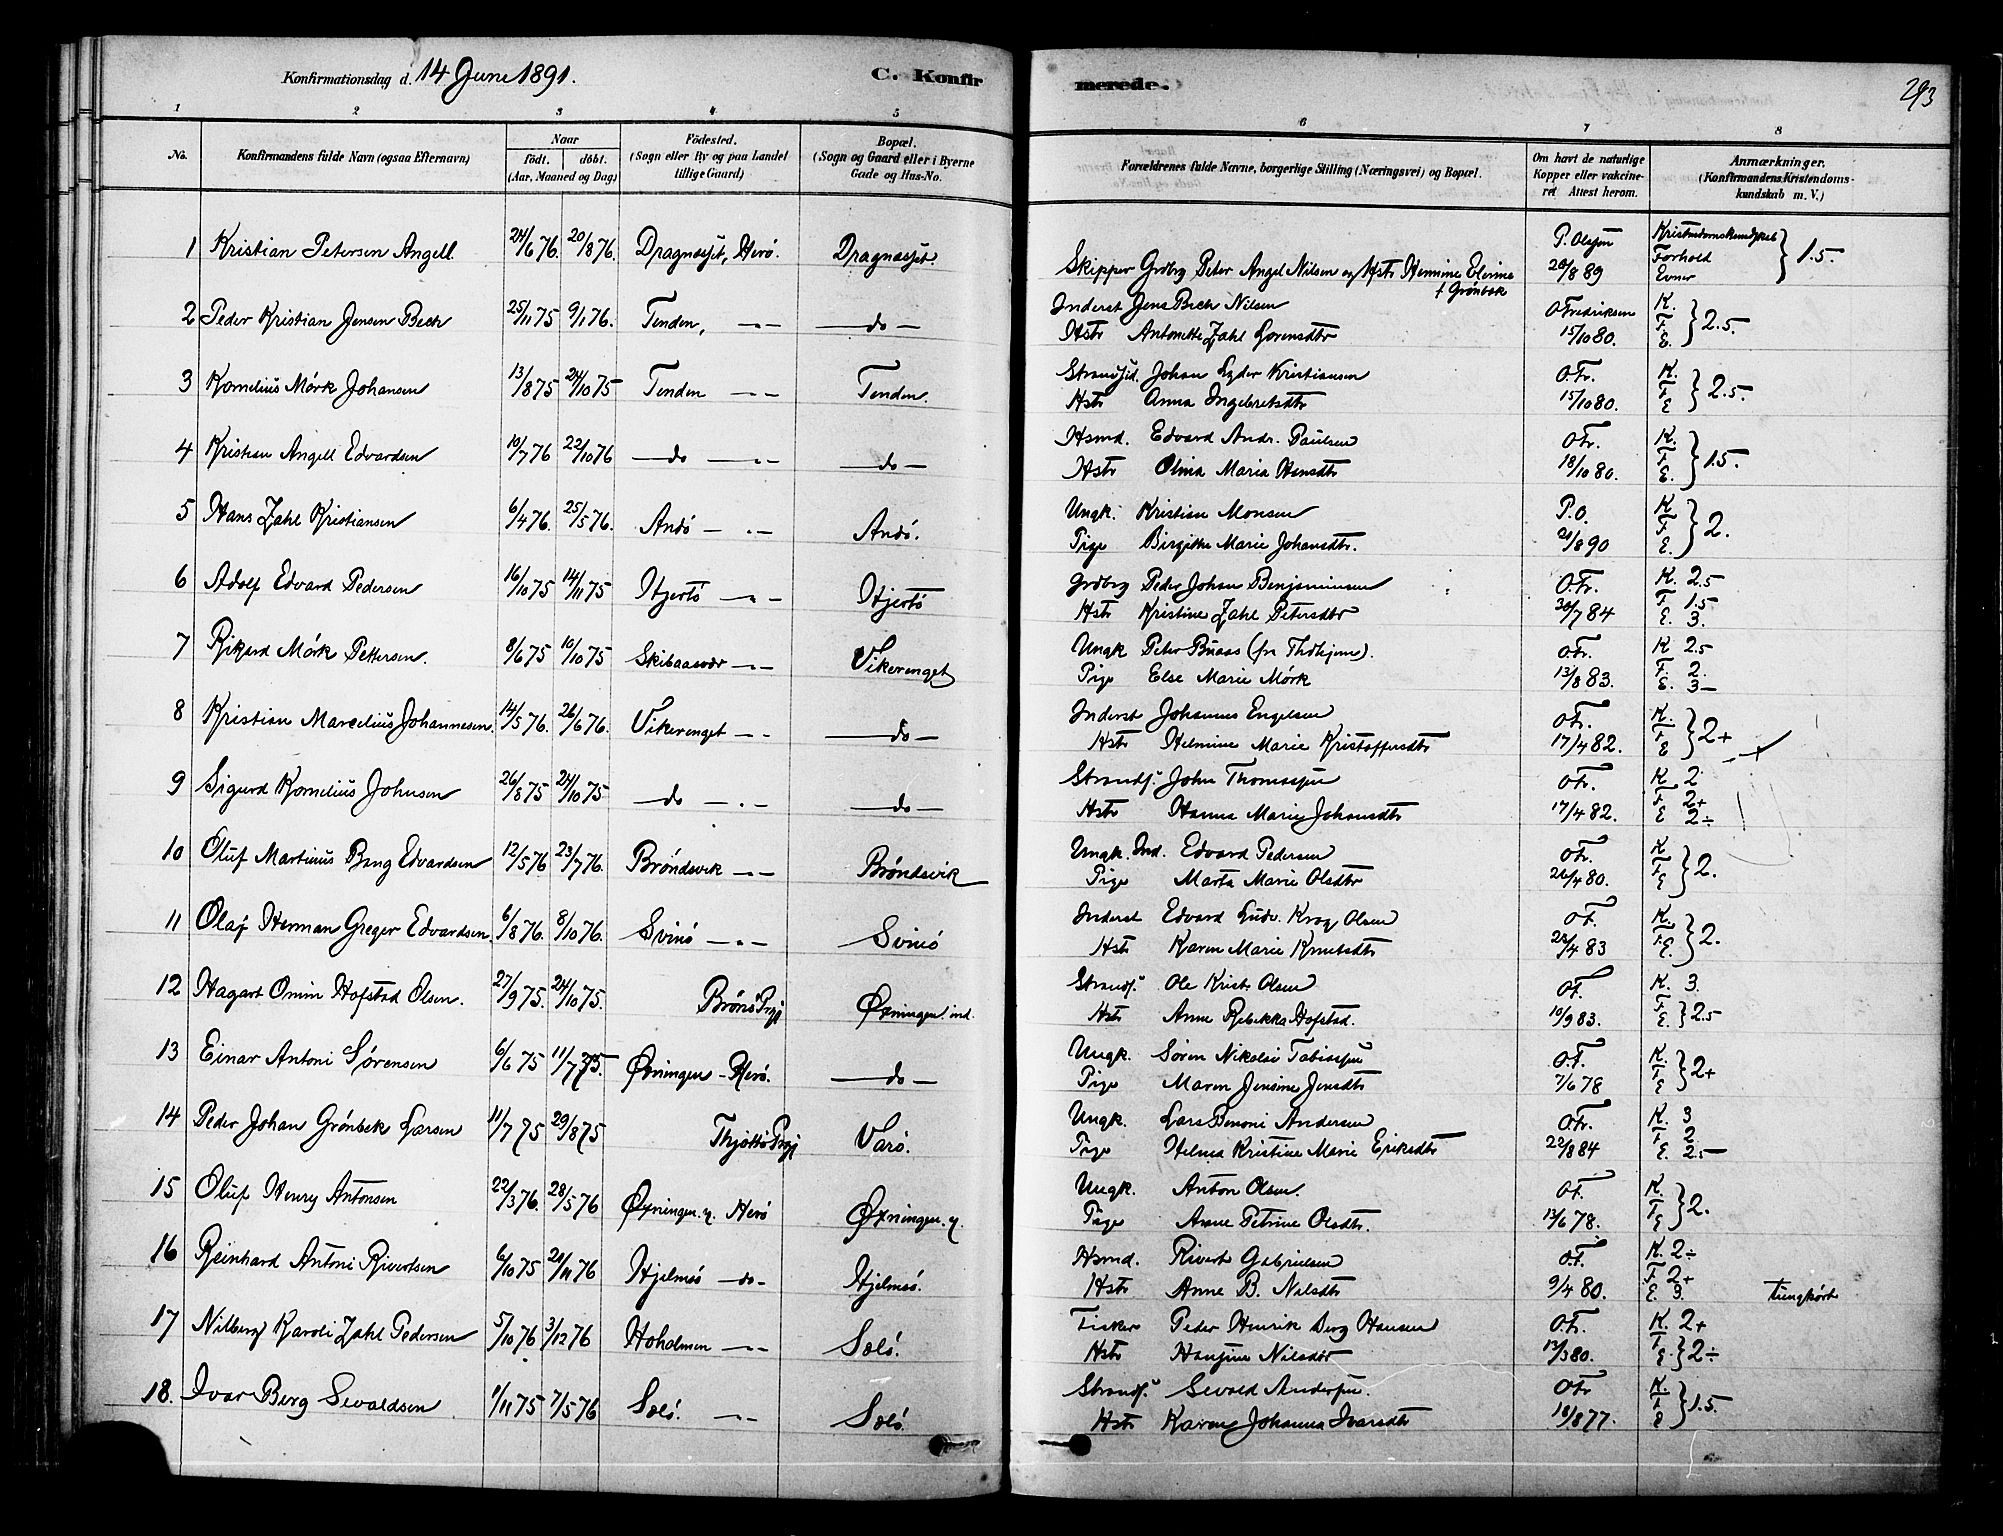 Konfirmationsdag d. 14 Juni 1891. C. Konfirmerede. 293
1 2 3 4 5 6 7 8
No. Konfirmandens fulde Navn (ogsaa Efternavn) Naar födt. döbt. (Aar, Maaned og Dag) Födested. (Sogn eller By og paa Landet tillige Gaard) Bopæl. (Sogn og Gaard eller i Byerne Gade og Hus-No. Forældrenes fulde Navne, borgerlige Stilling (Næringsvei) og Bopæl. Om havt de naturlige Kopper eller vakcineret Attest herom. Anmærkninger. (Konfirmandens Kristendomskundskab m. V.)
1 Kristian Petersen Angell. 24/6 76. 20/8 76. Dragnæsset, Herö. Dragnæsset. Skipper Grdbrg Peter Angel Nilsen og Hstr Hennine Elerine † Grönbek P. Olsen 20/8 89 Kristendomskundskab Forhold Evner } 1.5.
2 Peder Kristian Jensen Bech 25/11 75 9/1 76. Tenden, — " — — do — Inderst Jens Bech Nilsen
Hstr Antonette Zahl Lorensdtr O Fredriksen 15/10 80. K. F. E. } 2.5.
3 Kornelius Mörk Johansen 13/8 75 24/10 75 Tenden — " — Tenden. Strandsid. Johan Lyder Kristiansen
Hstr Anna Ingebretsdtr O.Fr. 15/10 80. K. F. E } 2.5.
4 Kristian Angell Edvardsen 10/7 76 22/10 76 — do — " — — do — Hsmd. Edvard Andr. Paulsen
Hstr Olina Maria Hansdtr O.Fr. 18/10 80. K. F. E. } 1.5.
5 Hans Zahl Kristiansen 6/4 76. 25/5 76. Andö — " — Andö. Ungk. Kristian Monsen
Pige Birgitte Marie Johansdtr. P.O. 21/8 90 K F E. } 2.
6 Adolf Edvard Pedersen 16/10 75 14/11 75 Hjertö — " — Hjertö Grdbrg Peder Johan Benjaminsen
Hstr Kristine Zahl Petersdtr O.Fr. 30/7 84 K. 2.5 F. 1.5 E. 3.
7 Rikard Mörk Pettersen. 8/6 75 10/10 75 Skibaasvær — " — Vikerenget Ungk Peter Buaas (fra Thdhjem).
Pige Else Marie Mörk O.Fr. 13/8 83. K 2.5 F. 2. E. 3 —
8 Kristian Marcelius Johannesen. 14/5 76. 26/6 76. Vikerenget — " — — do — Inderst Johannes Engelsen
Hstr Helmine Marie Kristoffersdtr O.Fr. 17/4 82. K. F. E } 2+
9 Sigurd Kornelius Johnsen 26/8 75 24/10 75 — do — " — — do — Strands. John Thomassen
Hstr Hanna Marie Johansdtr O.Fr. 17/4 82. K 2 F. 2+ E 2÷
10 Oluf Martinius Bang Edvardsen 12/5 76 23/7 76. Bröndsvik — " — Bröndsvik Ungk. Ind. Edvard Pedersen
Pige Marta Marie Olsdtr O.Fr. 26/4 80. K F. E } 2.
11 Olaf Herman Greger Edvardsen. 6/8 76. 8/10 76. Svinö — " — Svinö Inderst Edvard Ludv. Krog Olsen
Hstr Karen Marie Knutsdtr O F. 22/4 83 K. F. E. } 2.
12 Hagart Omin Hofstad Olsen. 27/9 75. 24/10 75. Brönö Prgj Öxningen ind. Strands. Ole Krist. Olsen
Hstr Anne Rebekka Hofstad. O F. 10/9 83. K. 3. F. E. } 2.5
13 Einar Antoni Sörensen 6/6 75 11/7 75. Öxningen — Herö. — do — Ungk. Sören Nikolai Tobiassen
Pige Maren Jensine Jensdtr O.F. 7/6 78 K. F. E } 2+
14 Peder Johan Grönbek Larsen 11/7 75 29/8 75 Thjöttö Prgj Varö. Ungk. Lars Benoni Andersen
Pige Helma Kristine Marie Eriksdtr O.Fr. 22/8 84 K. 3 F 2. E. 2.5
15 Oluf Henry Antonsen 22/3 76. 28/5 76 Öxningen. y. Herö Öxningen. y. Ungk. Anton Olsen.
Pige Anne Petrine Olsdtr. O F. 13/6 78. K. F. E } 2.
16 Reinhard Antoni Rivertsen 6/10 75 20/11 76 Hjelmsö — do — Hjelmsö. Hsmd. Rivert Gabrielsen
Hstr Anne B. Nilsdtr O.F. 9/4 80. K. 2÷ F. 2+ E. 3. tunghört
17 Nilberg Karoli Zahl Pedersen 5/10 76 3/12 76 Hoholmen — " — Sölö. Fisker Peder Henrik Berg Hansen
Hstr Hansine Nilsdtr O.Fr. 12/3 80. K. 2+ F. E. } 2÷
18. Ivar Berg Sevaldsen 1/11 75 7/5 76 Sölö. — " — Sölö. Strands. Sevald Andersen.
Hstr Karen Johanna Ivarsdtr O Fr 18/8 77. K. F E } 1.5.